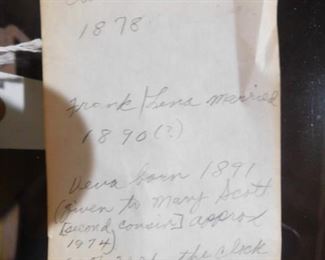 1878
Frank/Lena married
1890(?)
Veva born 1891
(given to Mary Scott
[second cousin] approx
1974)
the clock